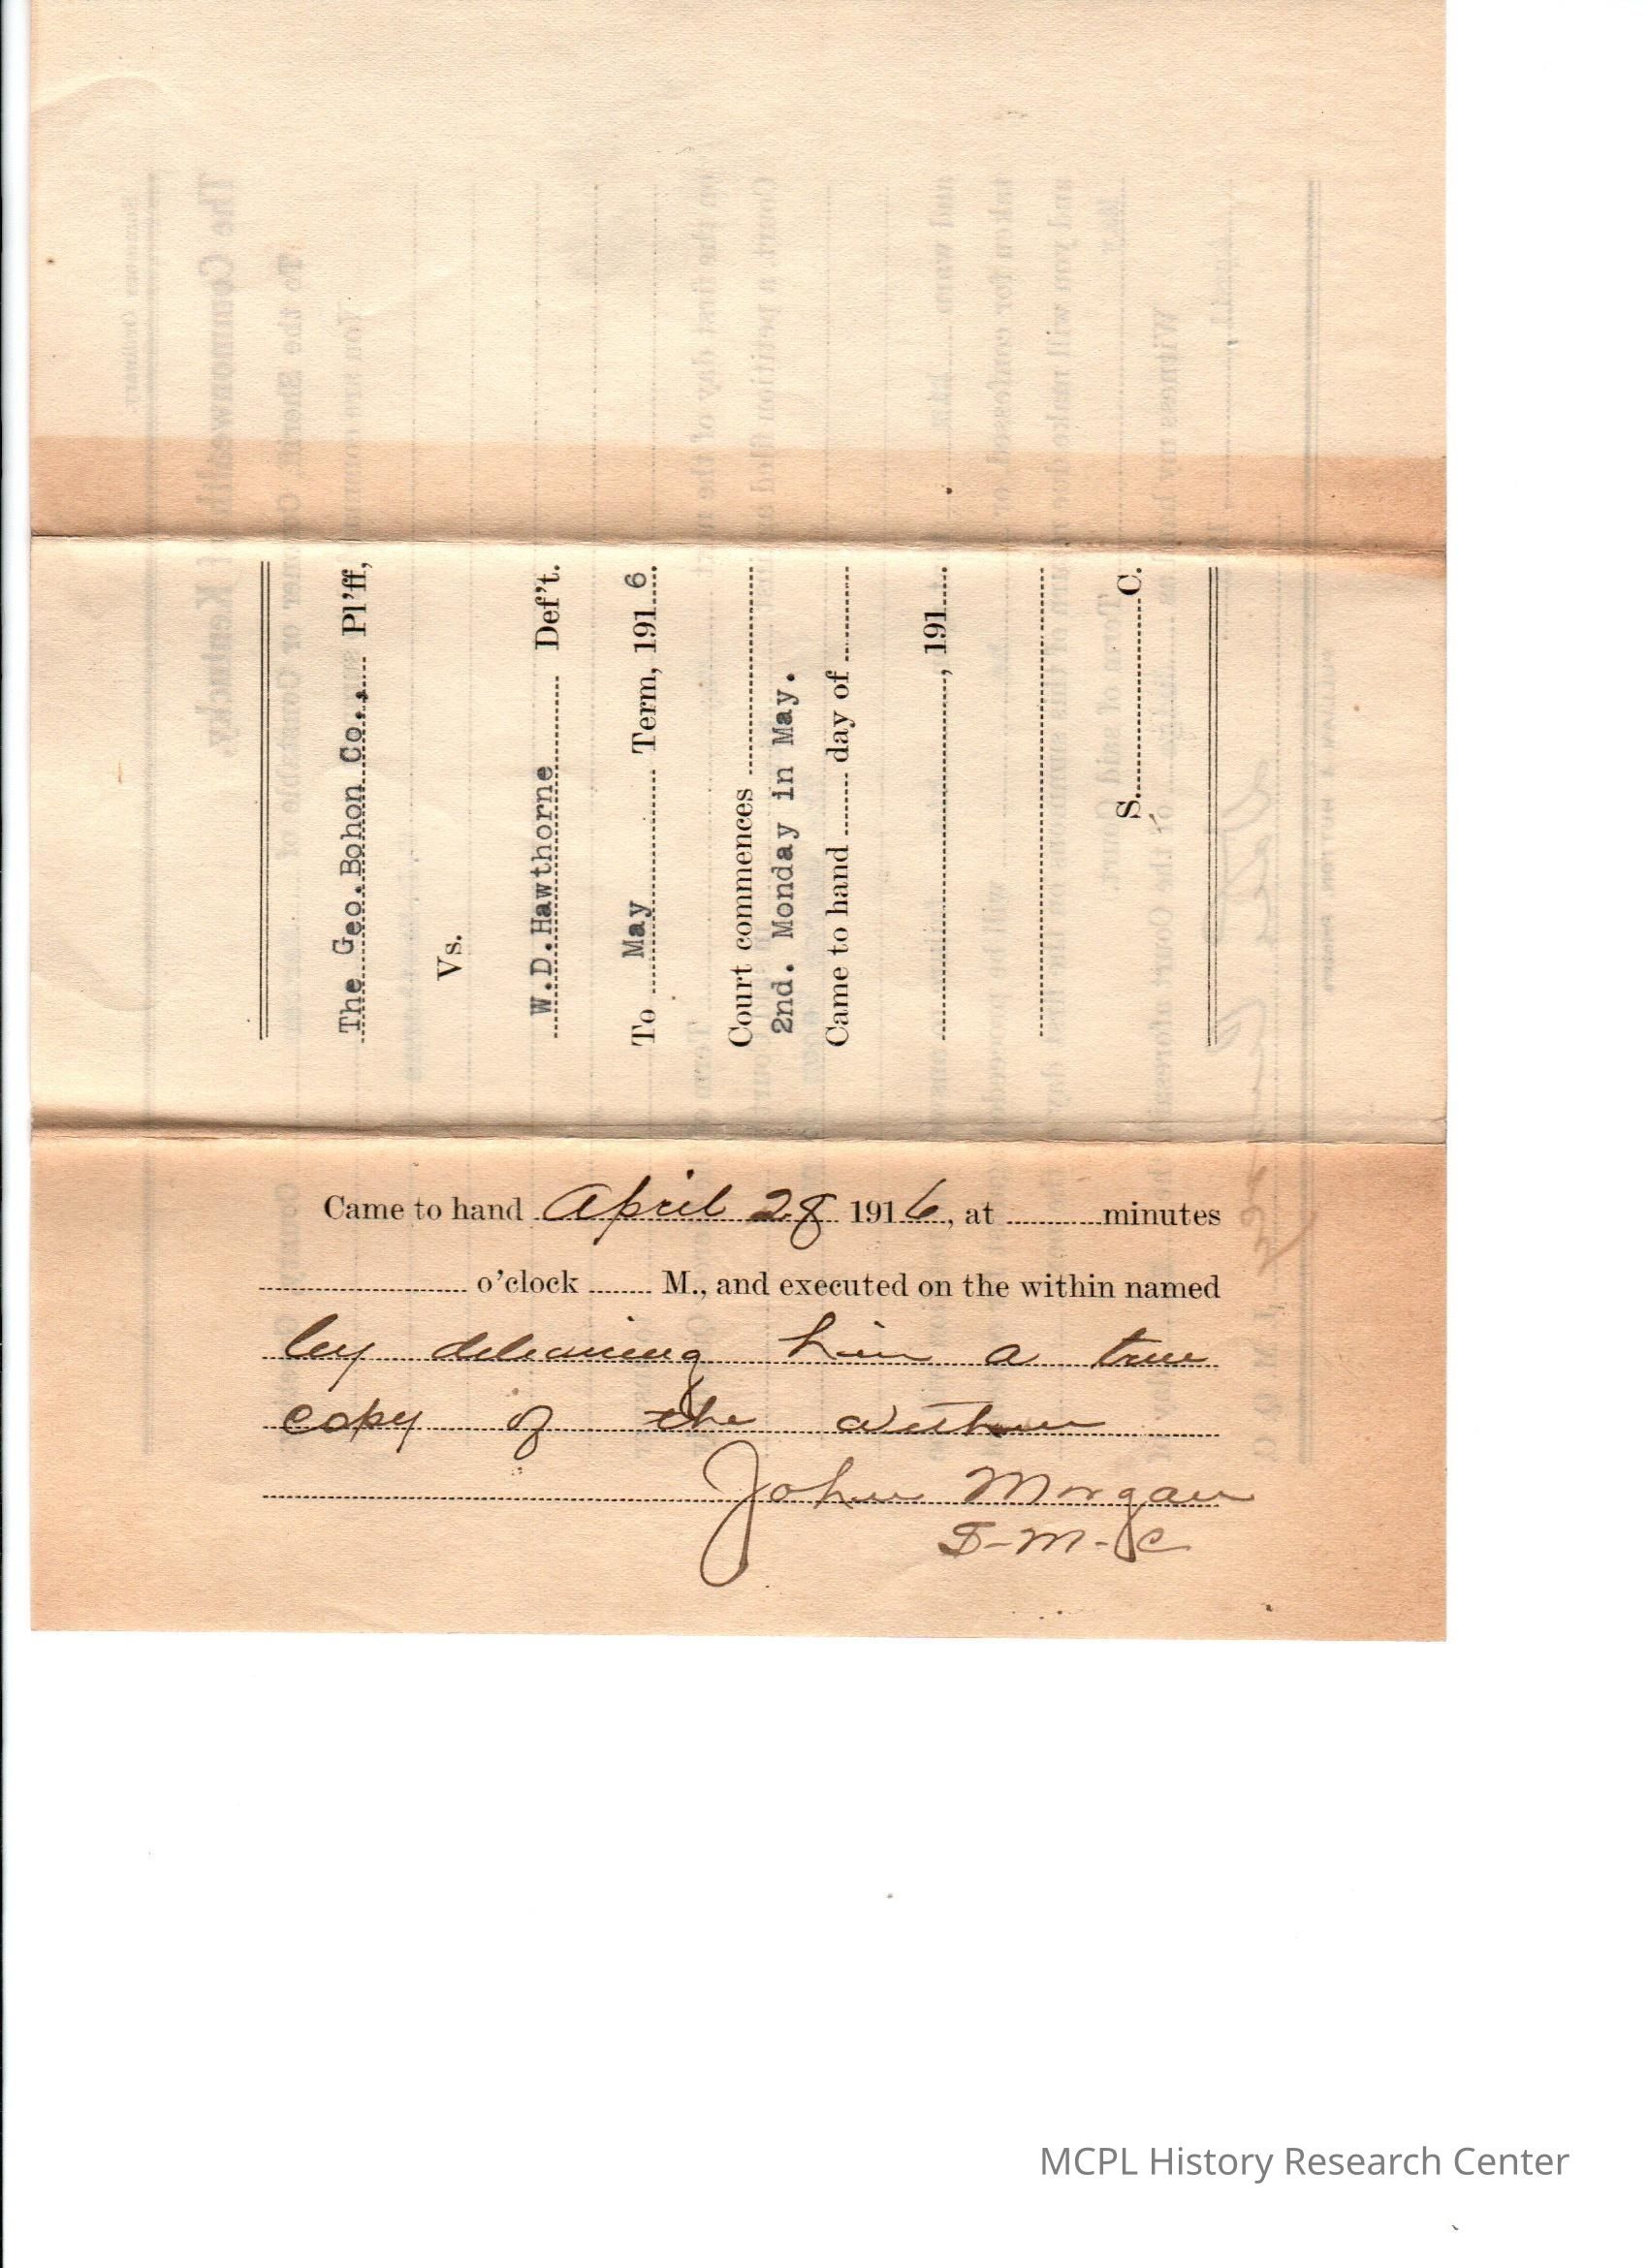 The Geo. Bohon Co., Pl'ff,
Vs.
W.D.Hawthorne Def't.
To May Term, 1916.
Court commences
2nd. Monday in May.
Came to hand day of
, 191
S. C.
Came to hand April 28 1916, at minutes
o'clock M., and executed on the within named
by delivering him a true
copy of the within
John Morgan
S-M-C
MCPL History Research Center